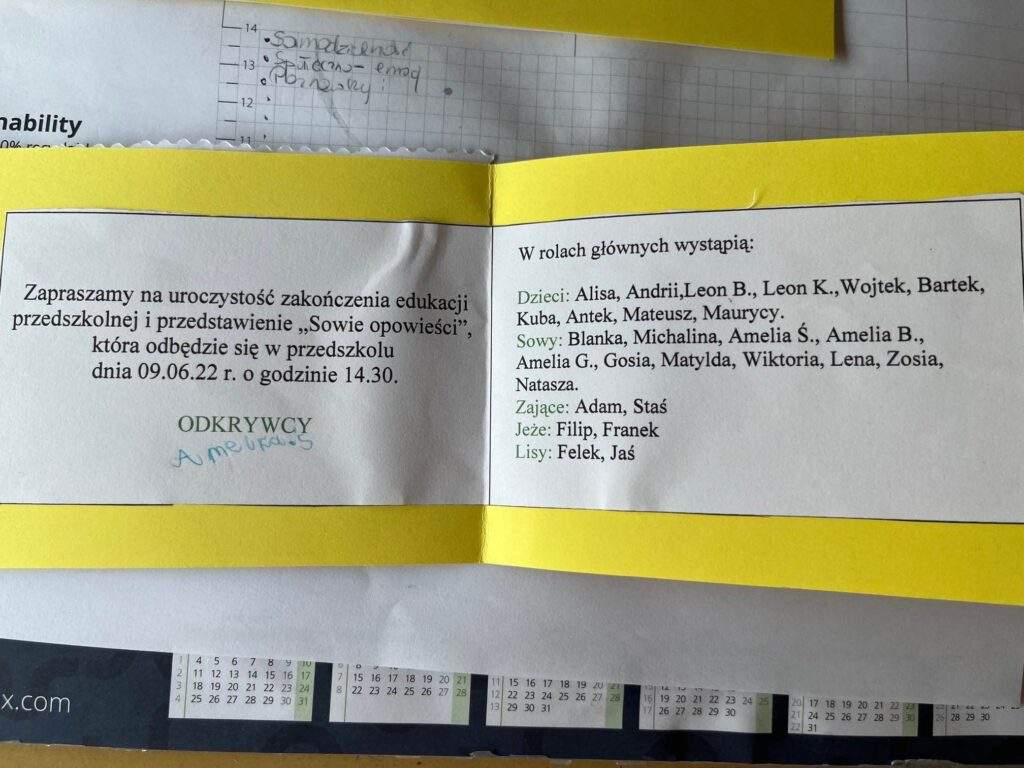 14
• Samodzielność
13
• Społeczno-emocj
• Poznawczy
12
11
nability
Zapraszamy na uroczystość zakończenia edukacji
przedszkolnej i przedstawienie „Sowie opowieści”,
która odbędzie się w przedszkolu
dnia 09.06.22 r. o godzinie 14.30.
ODKRYWCY
Amelka.S
W rolach głównych wystąpią:
Dzieci: Alisa, Andrii,Leon B., Leon K.,Wojtek, Bartek,
Kuba, Antek, Mateusz, Maurycy.
Sowy: Blanka, Michalina, Amelia Ś., Amelia B.,
Amelia G., Gosia, Matylda, Wiktoria, Lena, Zosia,
Natasza.
Zające: Adam, Staś
Jeże: Filip, Franek
Lisy: Felek, Jaś
x.com
1 4 5 6 7 8 9 10
2 11 12 13 14 15 16 17
3 18 19 20 21 22 23 24
4 25 26 27 28 29 30 31
7 15 16 17 18 19 20 21
8 22 23 24 25 26 27 28
11 15 16 17 18 19 20 21
12 22 23 24 25 26 27 28
13 29 30 31
16 19 20 21 22 23 24 25
17 26 27 28 29 30
20 17 18 19 20 21 22 23
21 24 25 26 27 28 29 30
22 31
26 28 29 30